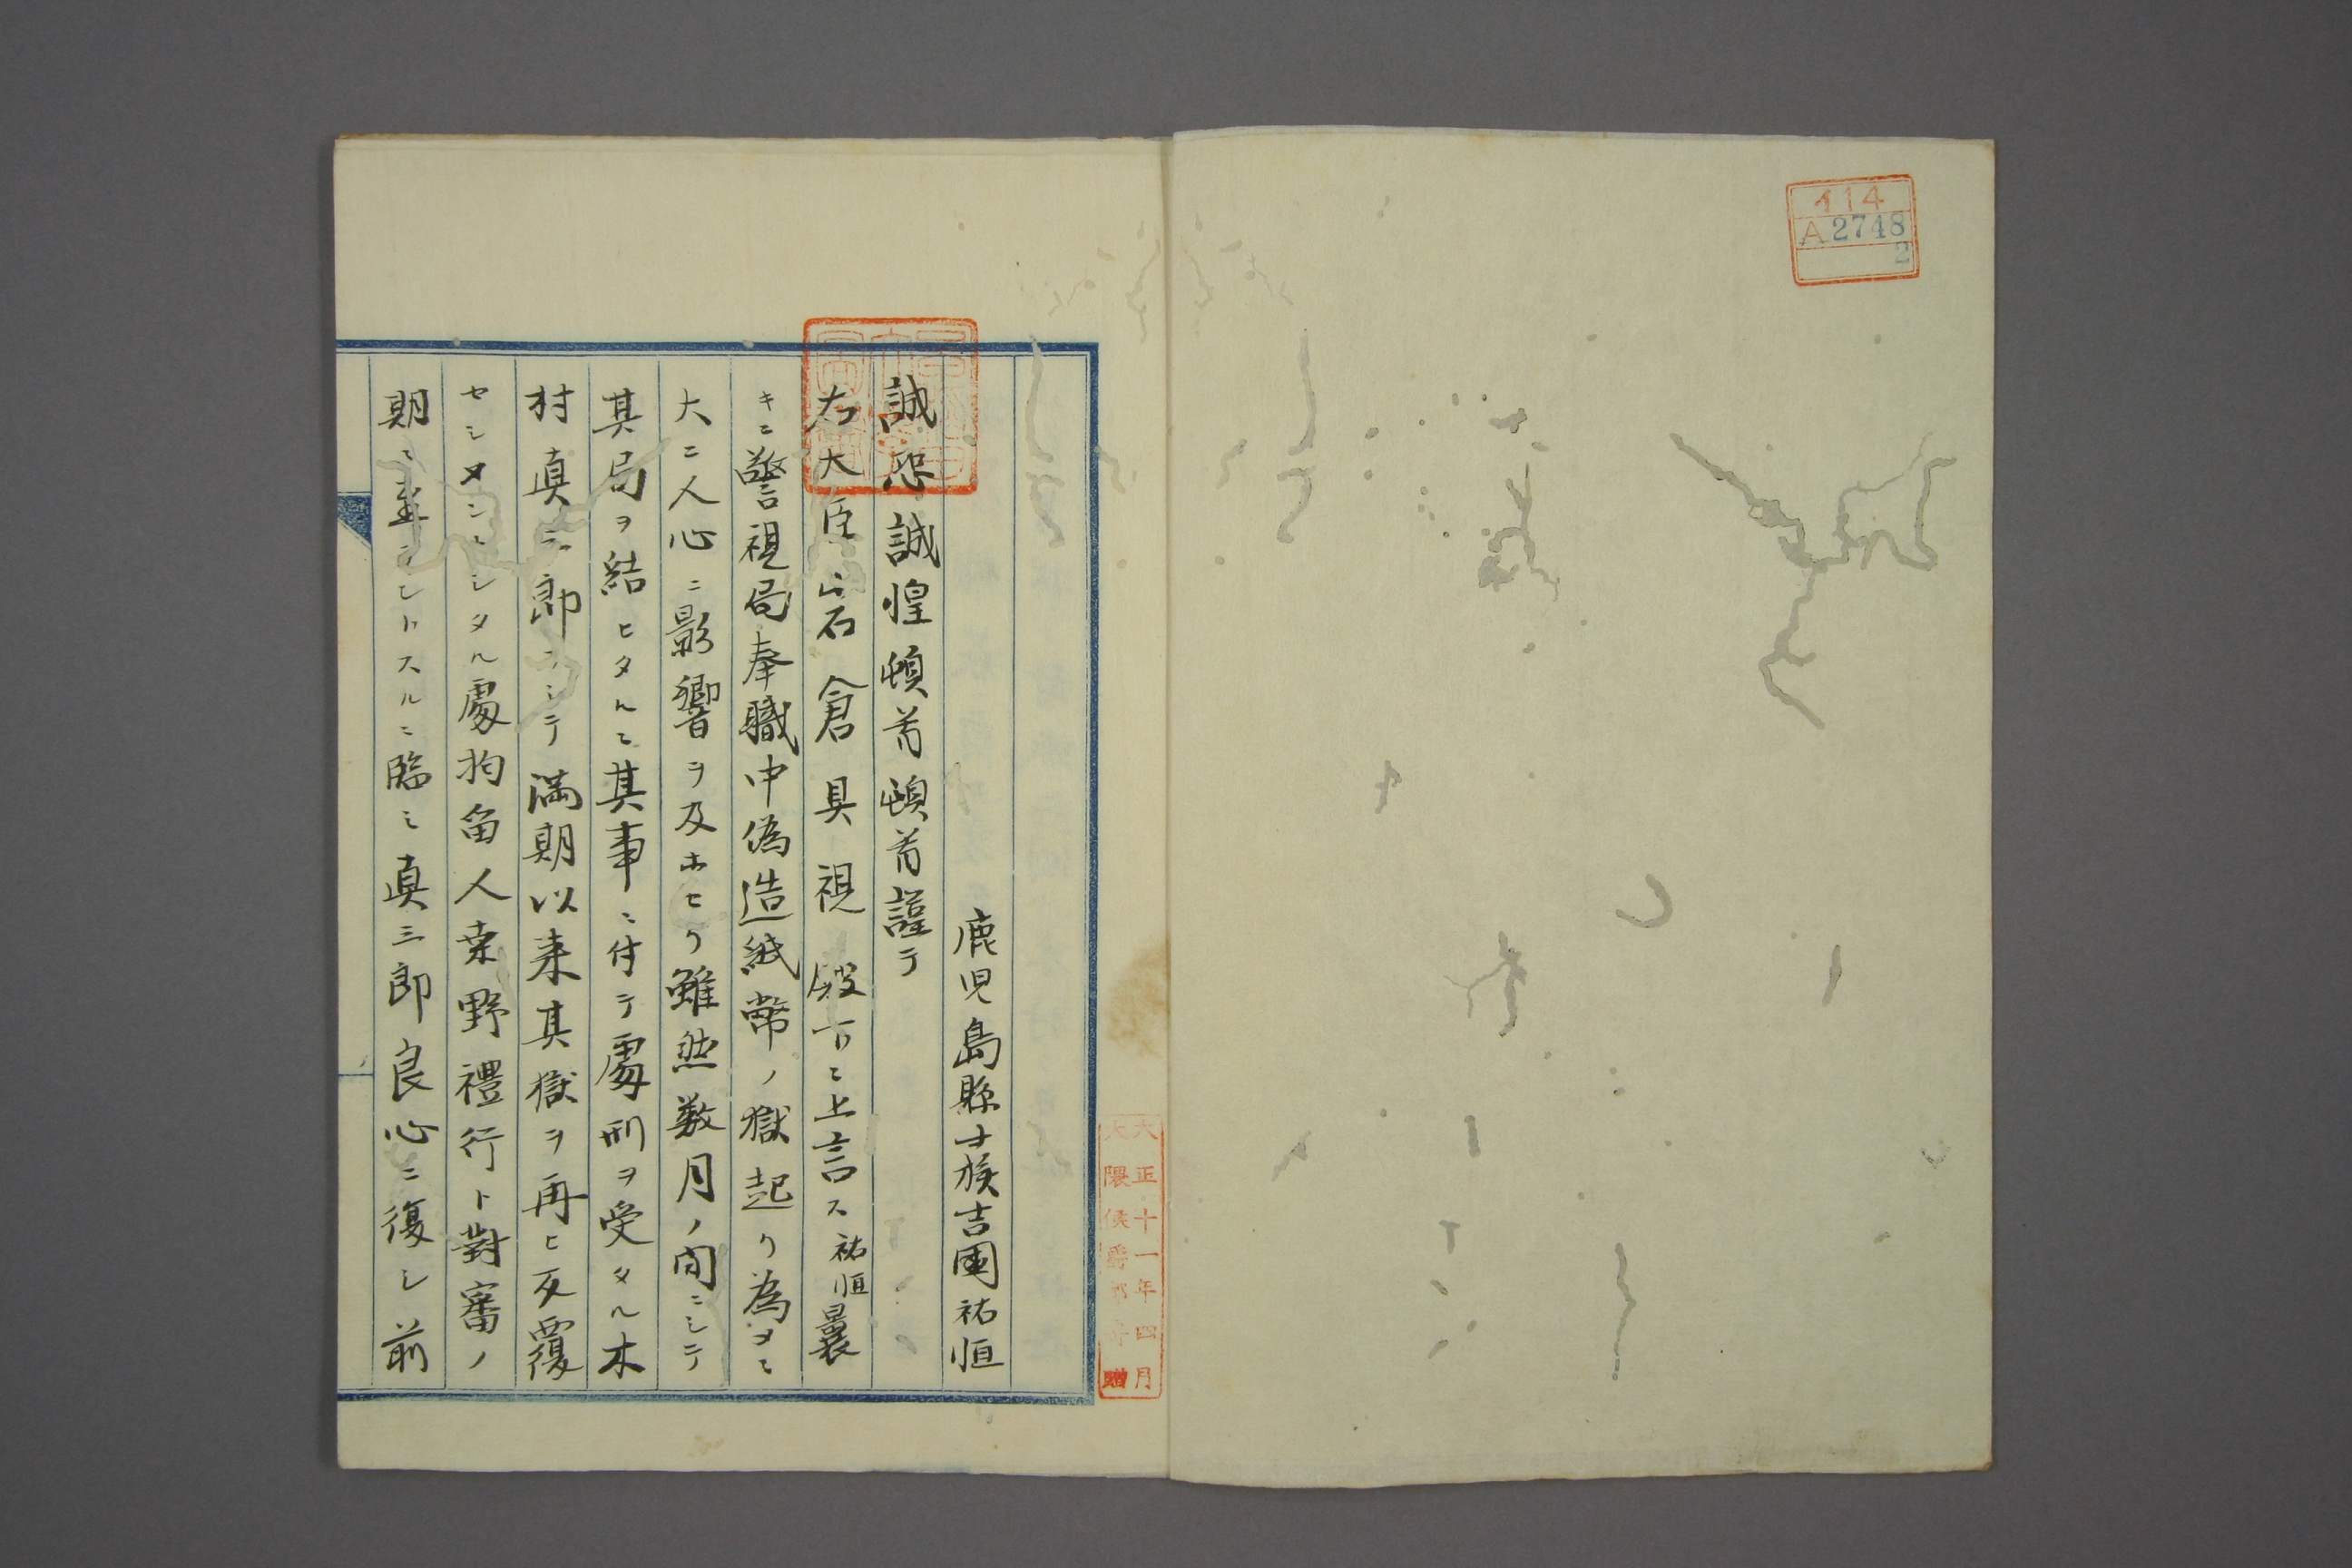 イ14
A2748
2
大正十一年四月
大隈侯爵家寄贈
鹿児島縣士族吉国祐恒
誠恐誠惶頓首頓首謹テ
右大臣岩倉具視殿下ニ上言ス祐恒曩
キニ警視局奉職中偽造紙幣ノ獄起リ為タミ
大ニ人心ニ影響ヲ及ホセリ雖然数月ノ間ニシテ
其局ヲ結ヒタルニ其事ニ付テ處刑ヲ受タル木
村真三郎ニシテ満期以来其獄ヲ再ヒ反覆
セシメントシタル處拘留人桒野禮行ト對審ノ
期ニ至ラントスルニ臨ミ真三郎良心ニ復シ前